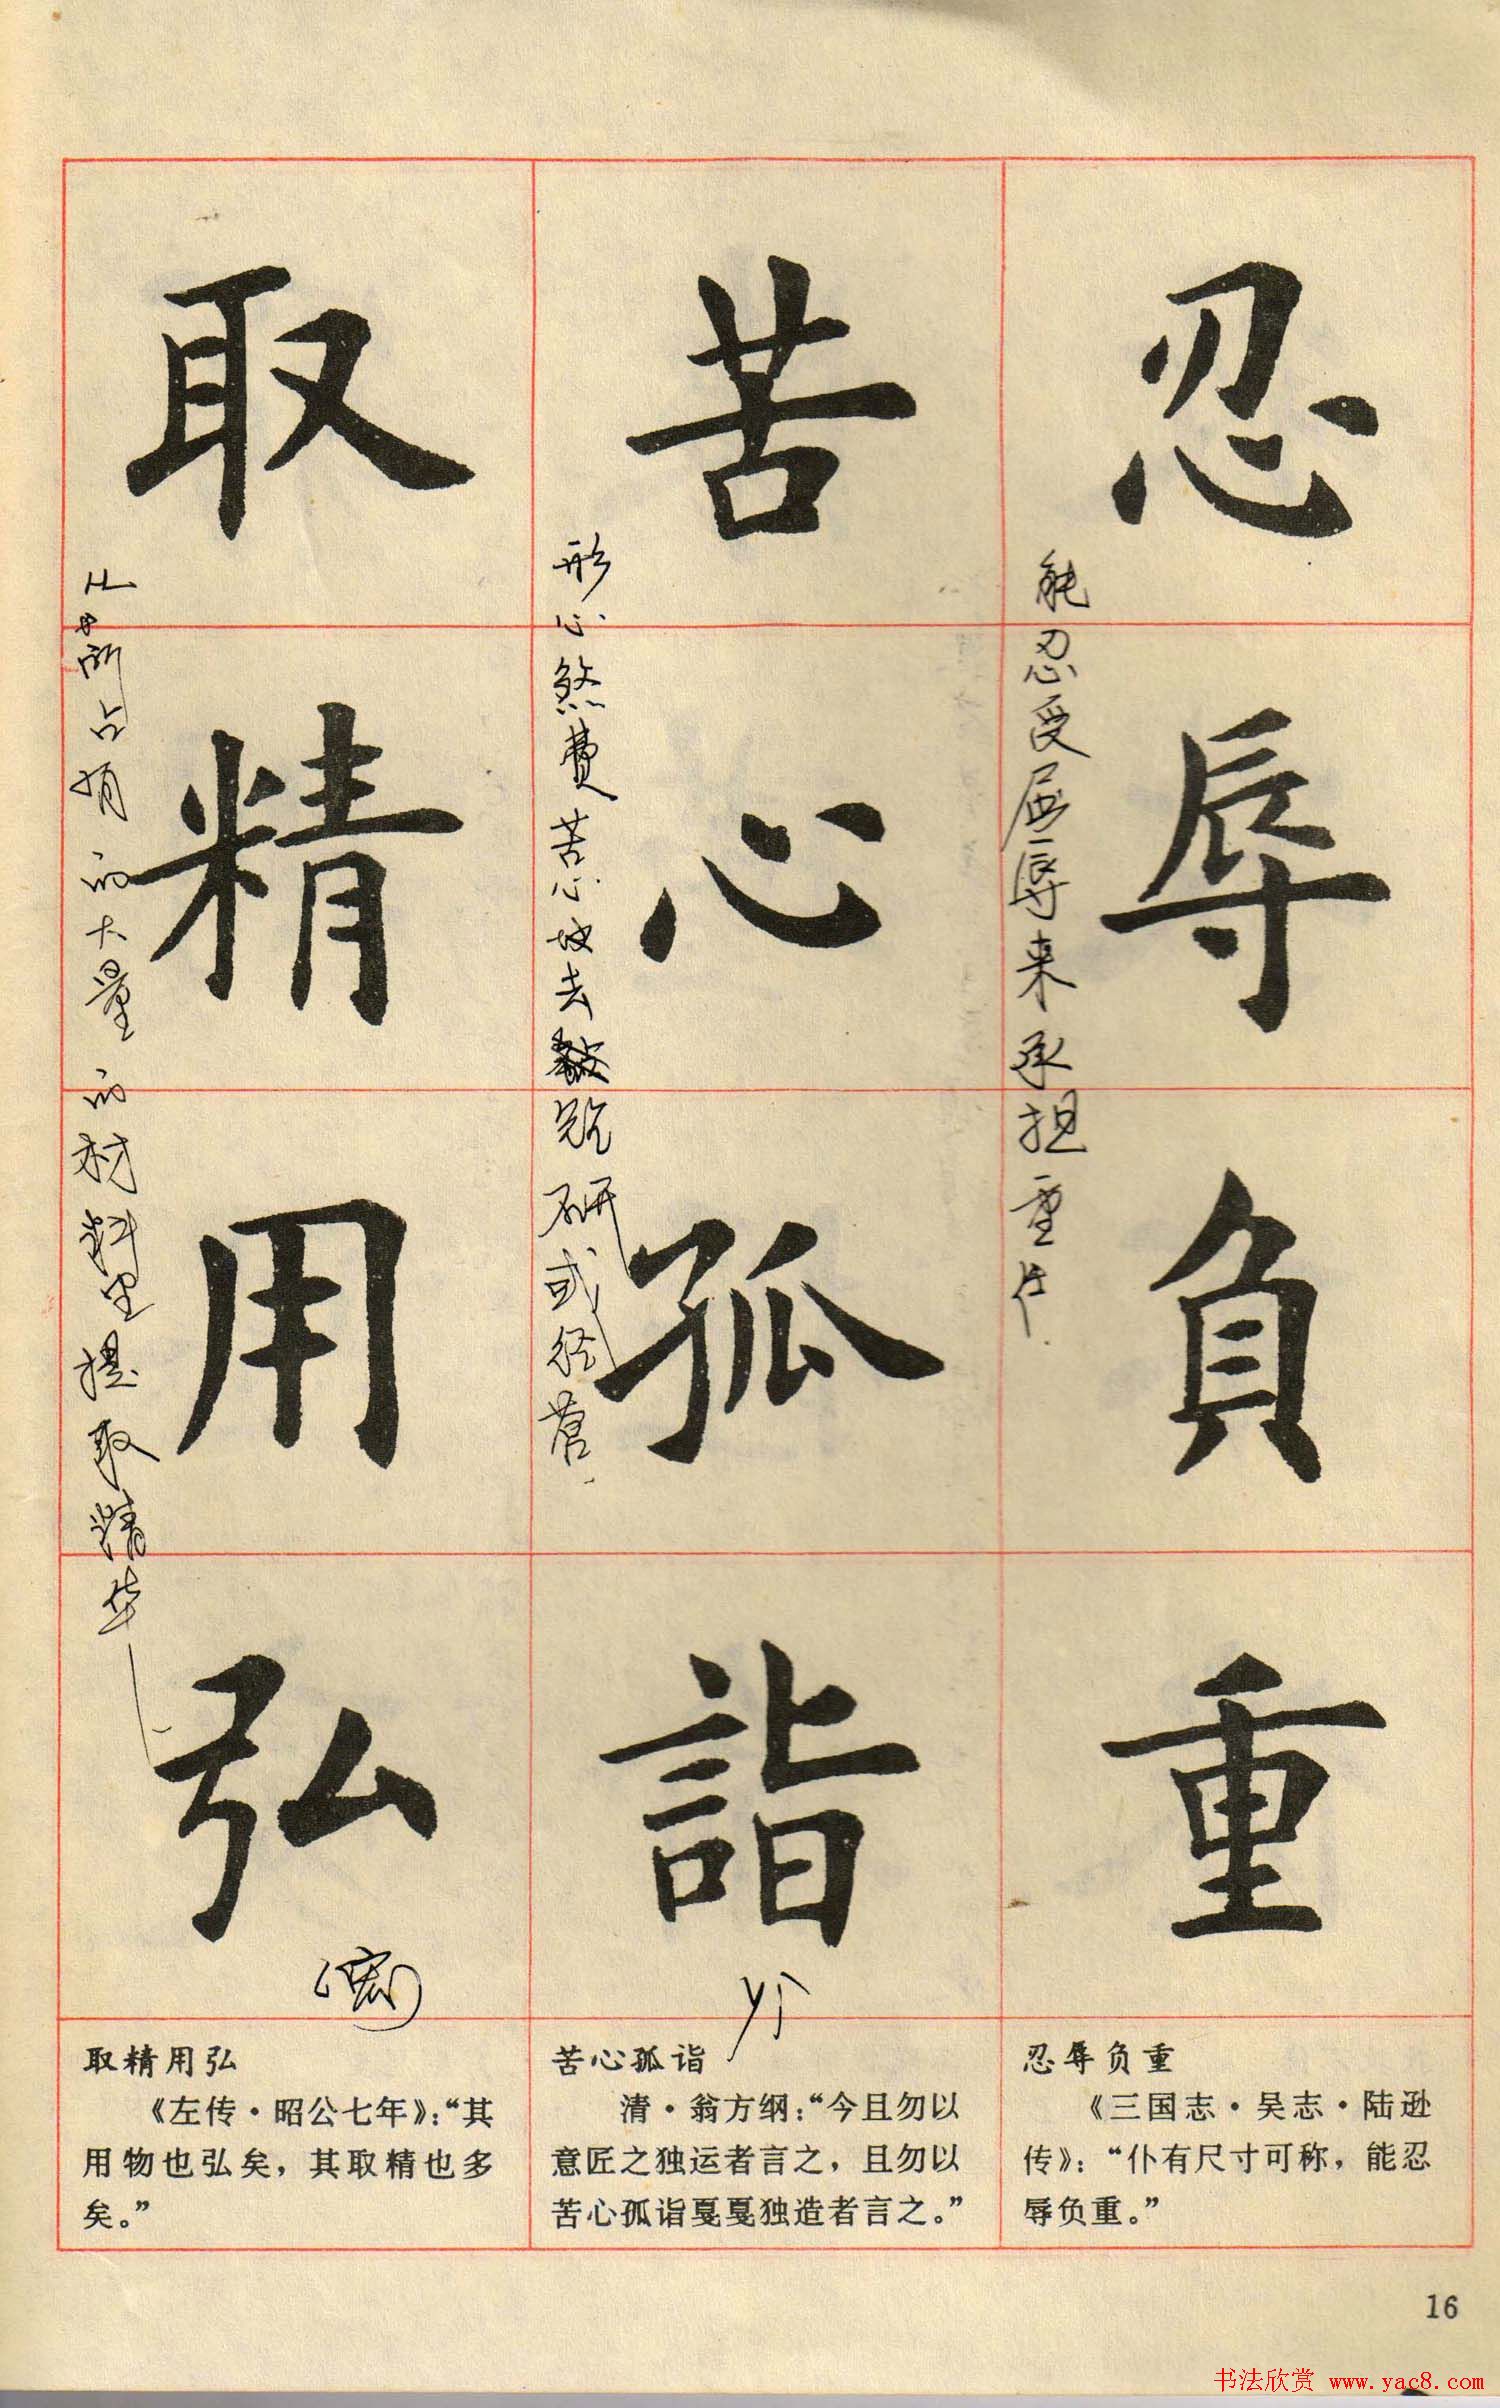 忍辱负重
能忍受屈辱来承担重任.
苦心孤詣
形心煞費苦心地去
研或经营
取精用弘
所占有的大量的材料里提取精华
(宏)
忍辱负重
《三国志·吴志·陆逊
传》：“仆有尺寸可称，能忍
辱负重。”
苦心孤诣
清·翁方纲：“今且勿以
意匠之独运者言之，且勿以
苦心孤诣戛戛独造者言之。”
取精用弘
《左传·昭公七年》：“其
用物也弘矣，其取精也多
矣。”
16
书法欣赏 www.yac8.com